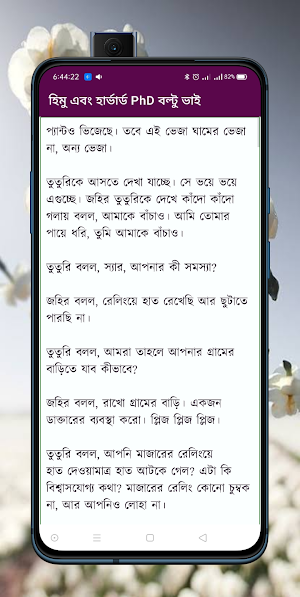 6:44:22
82%
হিমু এবং হার্ভার্ড PhD বল্টু ভাই
প্যান্টও ভিজেছে। তবে এই ভেজা ঘামের ভেজা
না, অন্য ভেজা।
তুতুরিকে আসতে দেখা যাচ্ছে। সে ভয়ে ভয়ে
এগুচ্ছে। জহির তুতুরিকে দেখে কাঁদো কাঁদো
গলায় বলল, আমাকে বাঁচাও। আমি তোমার
পায়ে ধরি, তুমি আমাকে বাঁচাও।
তুতুরি বলল, স্যার, আপনার কী সমস্যা?
জহির বলল, রেলিংয়ে হাত রেখেছি আর ছুটাতে
পারছি না।
তুতুরি বলল, আমরা তাহলে আপনার গ্রামের
বাড়িতে যাব কীভাবে?
জহির বলল, রাখো গ্রামের বাড়ি। একজন
ডাক্তারের ব্যবস্থা করো। প্লিজ প্লিজ প্লিজ।
তুতুরি বলল, আপনি মাজারের রেলিংয়ে
হাত দেওয়ামাত্র হাত আটকে গেল? এটা কি
বিশ্বাসযোগ্য কথা? মাজারের রেলিং কোনো চুম্বক
না, আর আপনিও লোহা না।